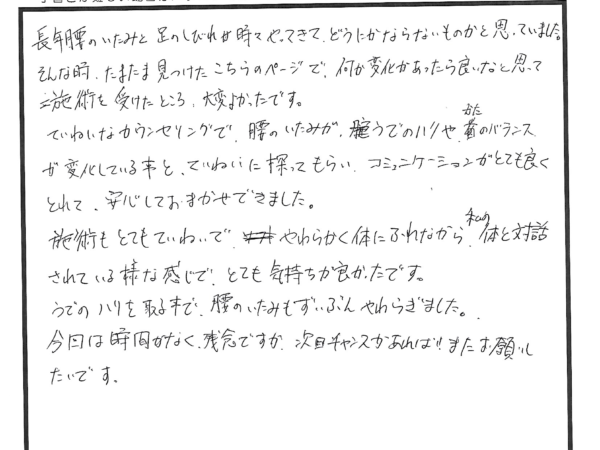 長年腰のいたみと足のしびれが時々やってきて、どうにかならないものかと思っていました。
そんな時、たまたま見つけたこちらのページで、何か変化があったら良いなと思って
施術を受けたところ、大変よかったです。
ていねいなカウンセリングで、腰のいたみが、うでのハリや、肩のバランス
かた
が変化している事と、ていねいに探ってもらい、コミュニケーションがとても良く
とれて、安心しておまかせできました。
施術もとてもていねいで、やわらかく体にふれながら、私の体と対話
されている様な感じで、とても気持ちが良かったです。
うでのハリを取る事で、腰のいたみもずいぶんやわらぎました。
今回は時間がなく、残念ですが、次回チャンスがあれば!!またお願いし
たいです。